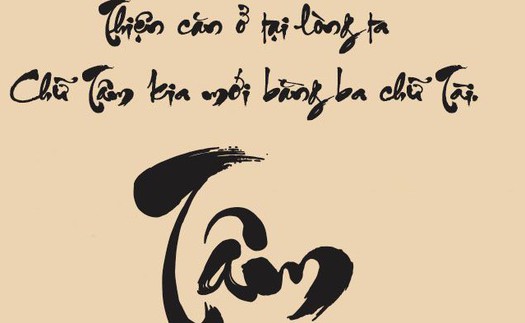 Thiện căn ở tại lòng ta
Chữ Tâm kia mới bằng ba chữ Tài.
Tâm